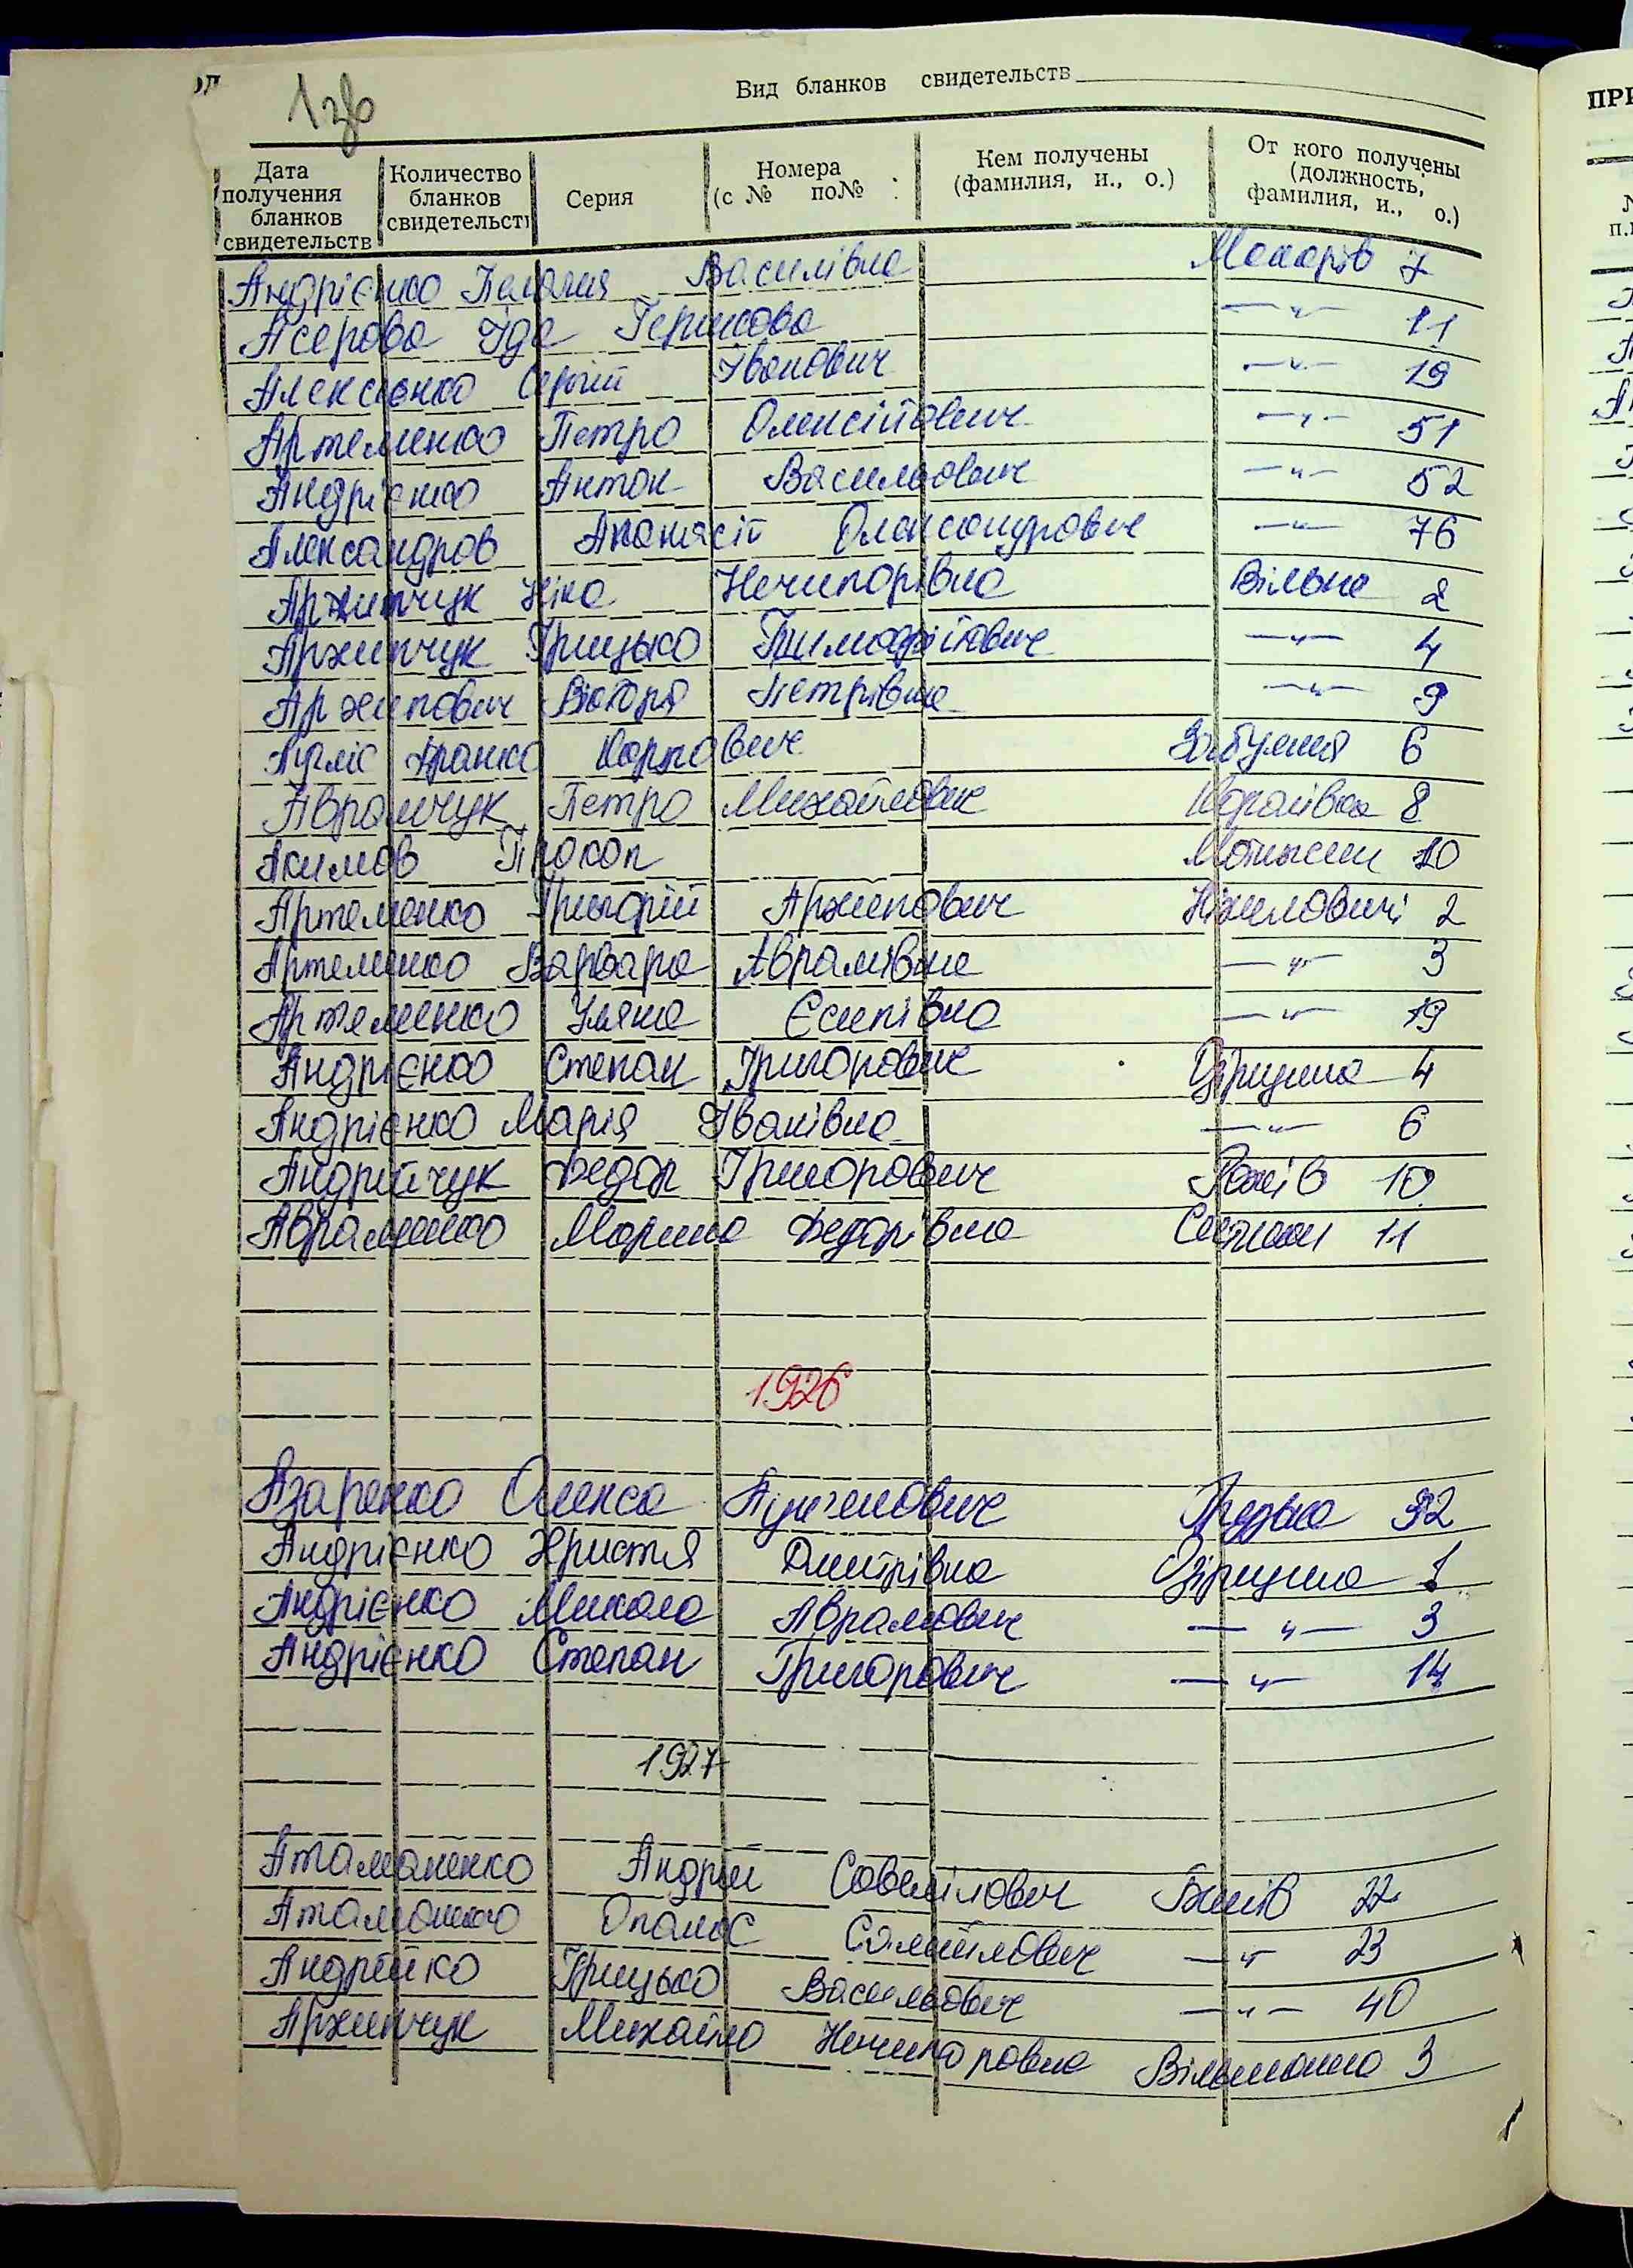 1зв
Вид бланков свидетельств
Дата получения бланков свидетельств
Количество бланков свидетельств
Серия
Номера (с № по№
Кем получены (фамилия, и., о.)
От кого получены (должность, фамилия, и., о.)
Андрієнко Пелагия Василівна Макарів 7
Асерова Іда Гершкова —"— 11
Алексієнко Сергій Іванович —"— 19
Артеменко Петро Олексійович —"— 51
Андрієнко Антон Васильович —"— 52
Александров Апанасій Олександрович —"— 76
Архипчук Ніна Нечипорівна Вільне 2
Архипчук Грицько Тимофійович —"— 4
Архипович Вікторія Петрівна —"— 9
Франко Карпович Забуяння 6
Аврамчук Петро Михайлович Королівка 8
Акимов Прокоп Мотыжин 10
Артеменко Григорій Архипович Ніжиловичі 2
Артеменко Варвара Аврамівна —"— 3
Артеменко Уляна Єсипівна —"— 19
Андрієнко Степан Григорович 4
Андрієнко Марія Іванівна —"— 6
Андрійчук Федор Григорович Рожів 10
Авраменко Марина Федорівна Ситняки 11
1926
Азаренко Олекса 92
Андрієнко Христя Дмитрівна 1
Андрієнко Микола Аврамович —"— 3
Андрієнко Степан Григорович —"— 14
1927
Атаманенко Андрій 22
Атаманенко Опанас Самійлович —"— 23
Андрійко Грицько Васильович —"— 40
Архипчук Михайло 3
ПРИ